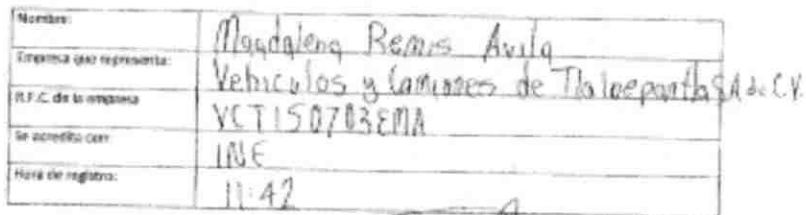 Nombre: Magdalena Remis Avila
Empresa que representa: Vehiculos y Camiones de Tlalnepantla S.A de C.V.
R.F.C. de la empresa VCT150703EMA
Se acredita con INE
Hora de registro: 11:42